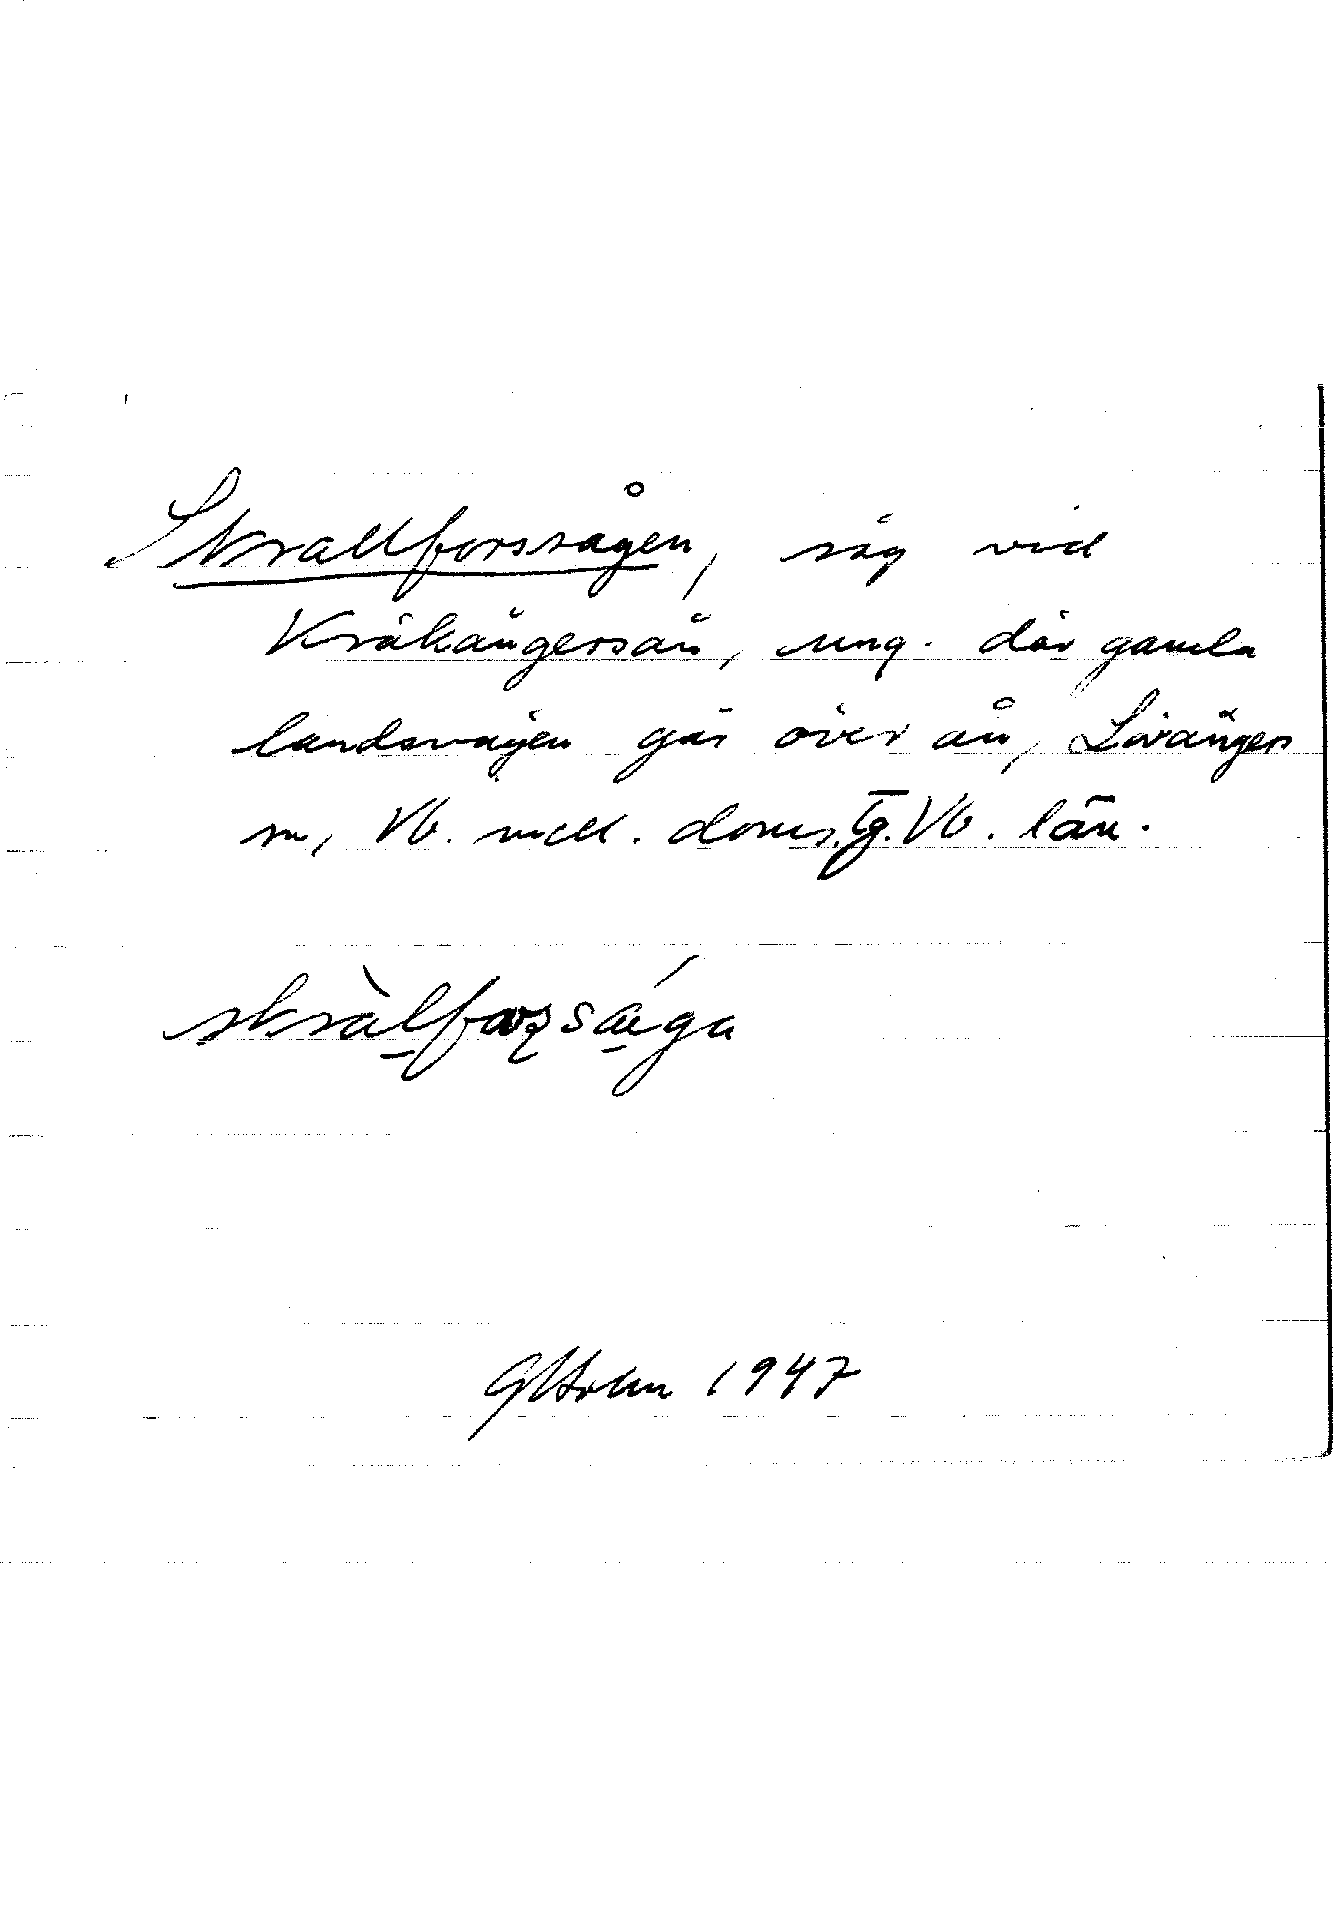 Skrallforssågen, såg vid
Kråkångersån, ung. där gamla
landsvägen går över ån, Lövångers
sn, Vb. mell. doms. Tg. Vb. län.
skràlforsága
GHolm 1947